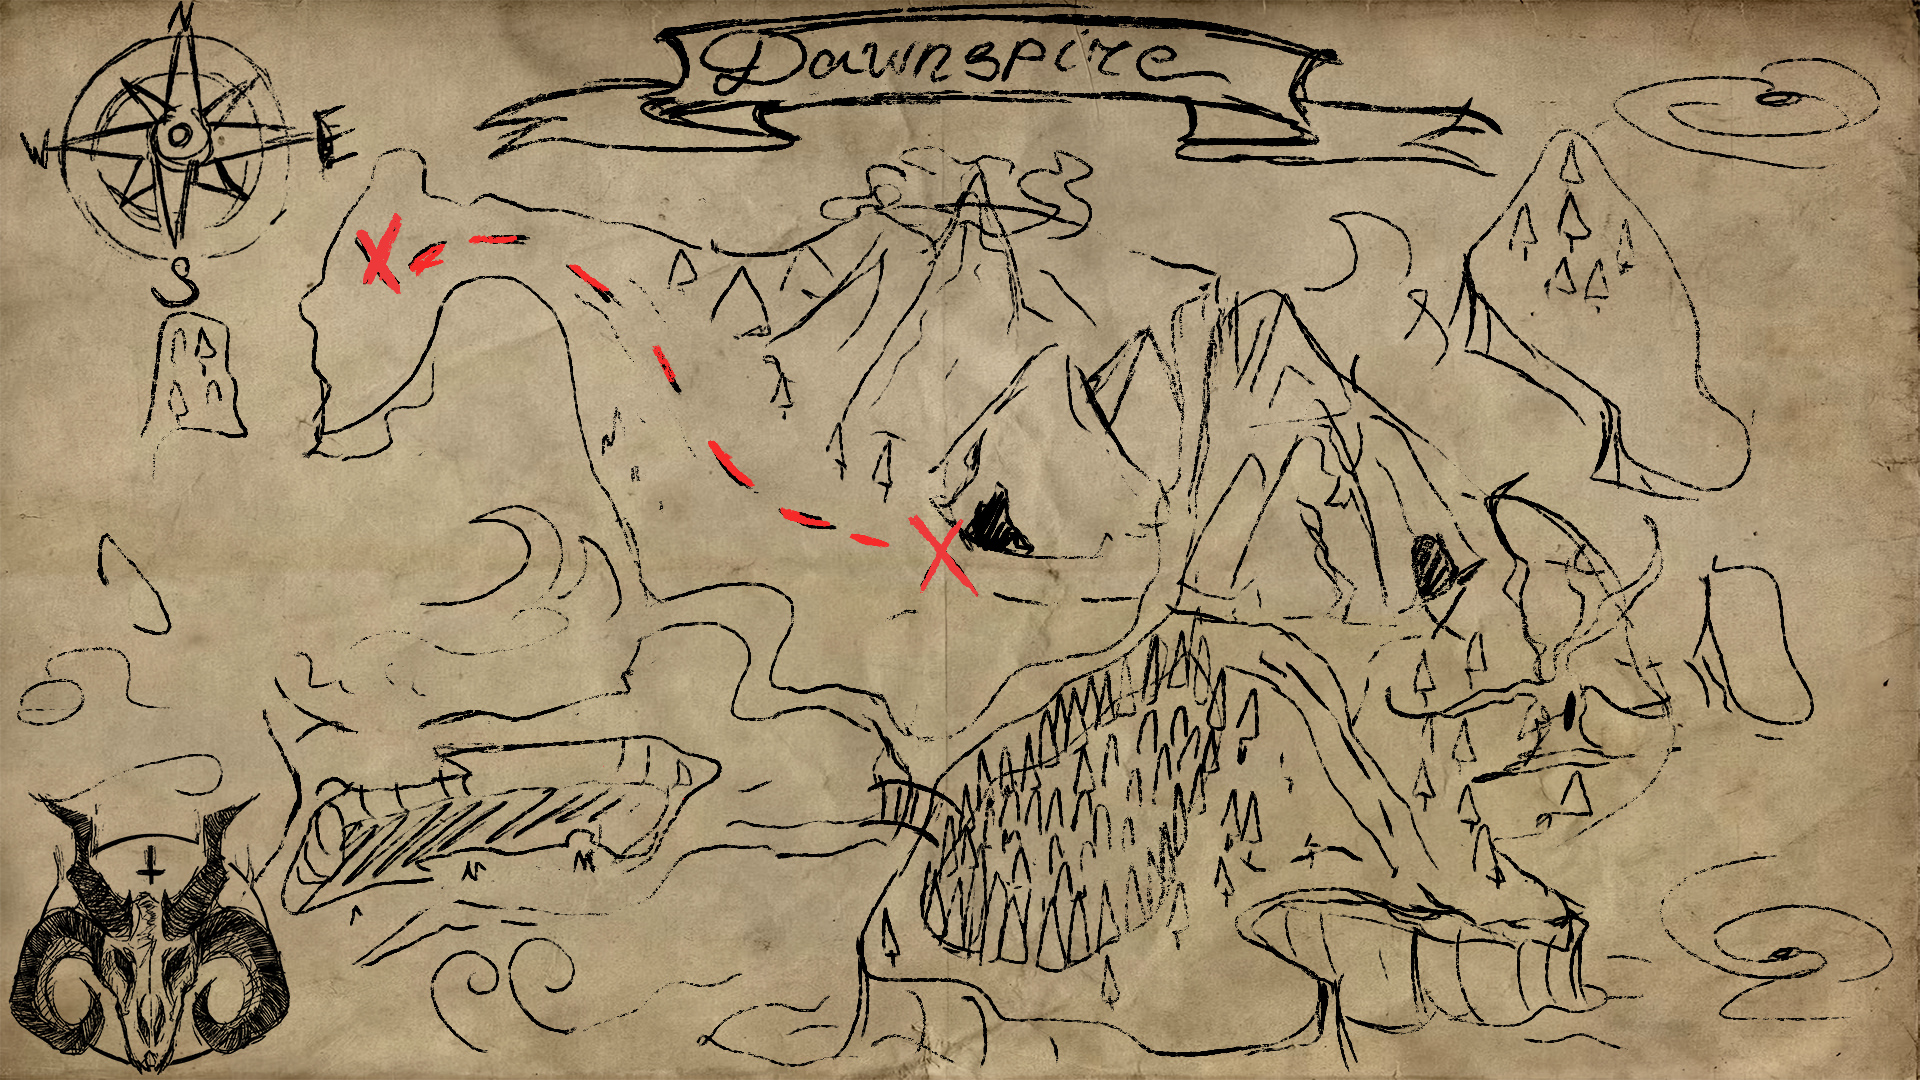 Dawnspire
N
W E
S